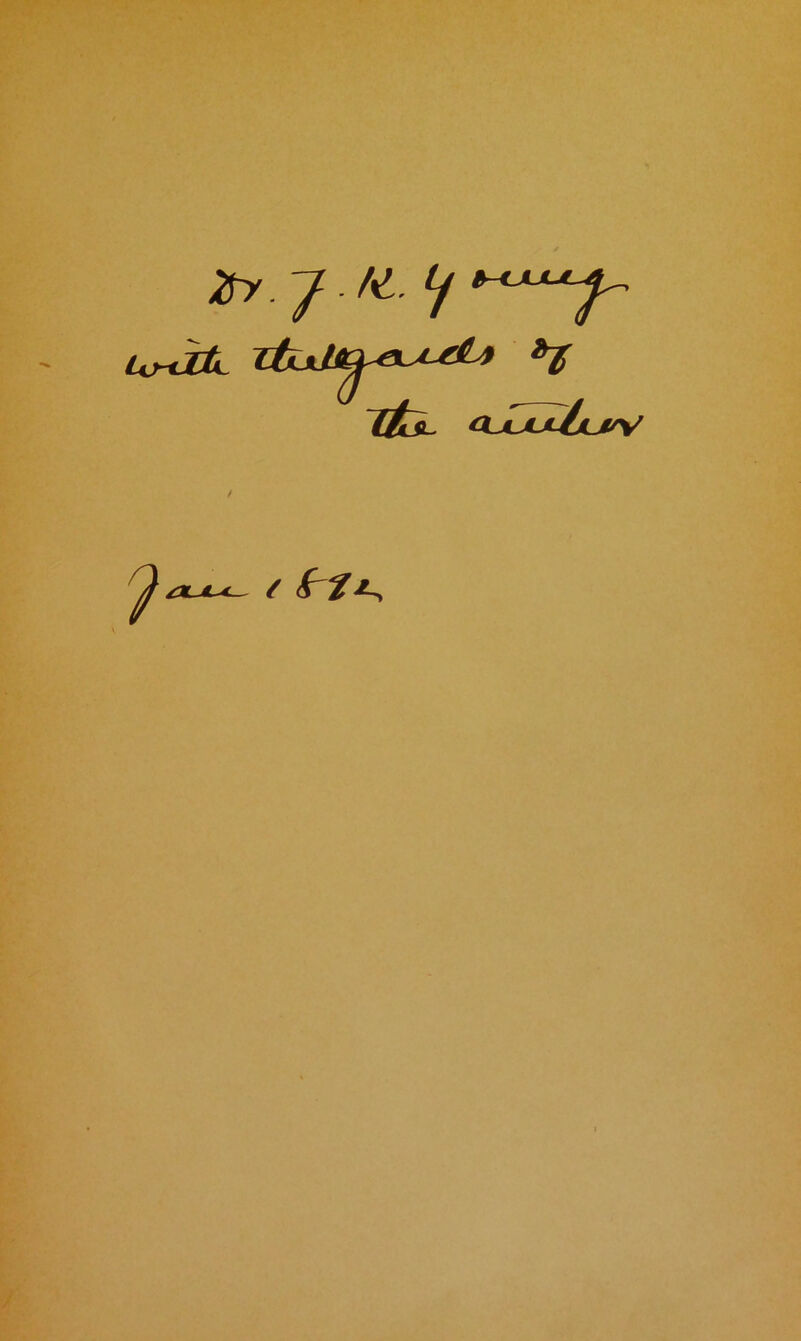 Dr. J. K. Young
with the regards of
the author
Jan. 1872